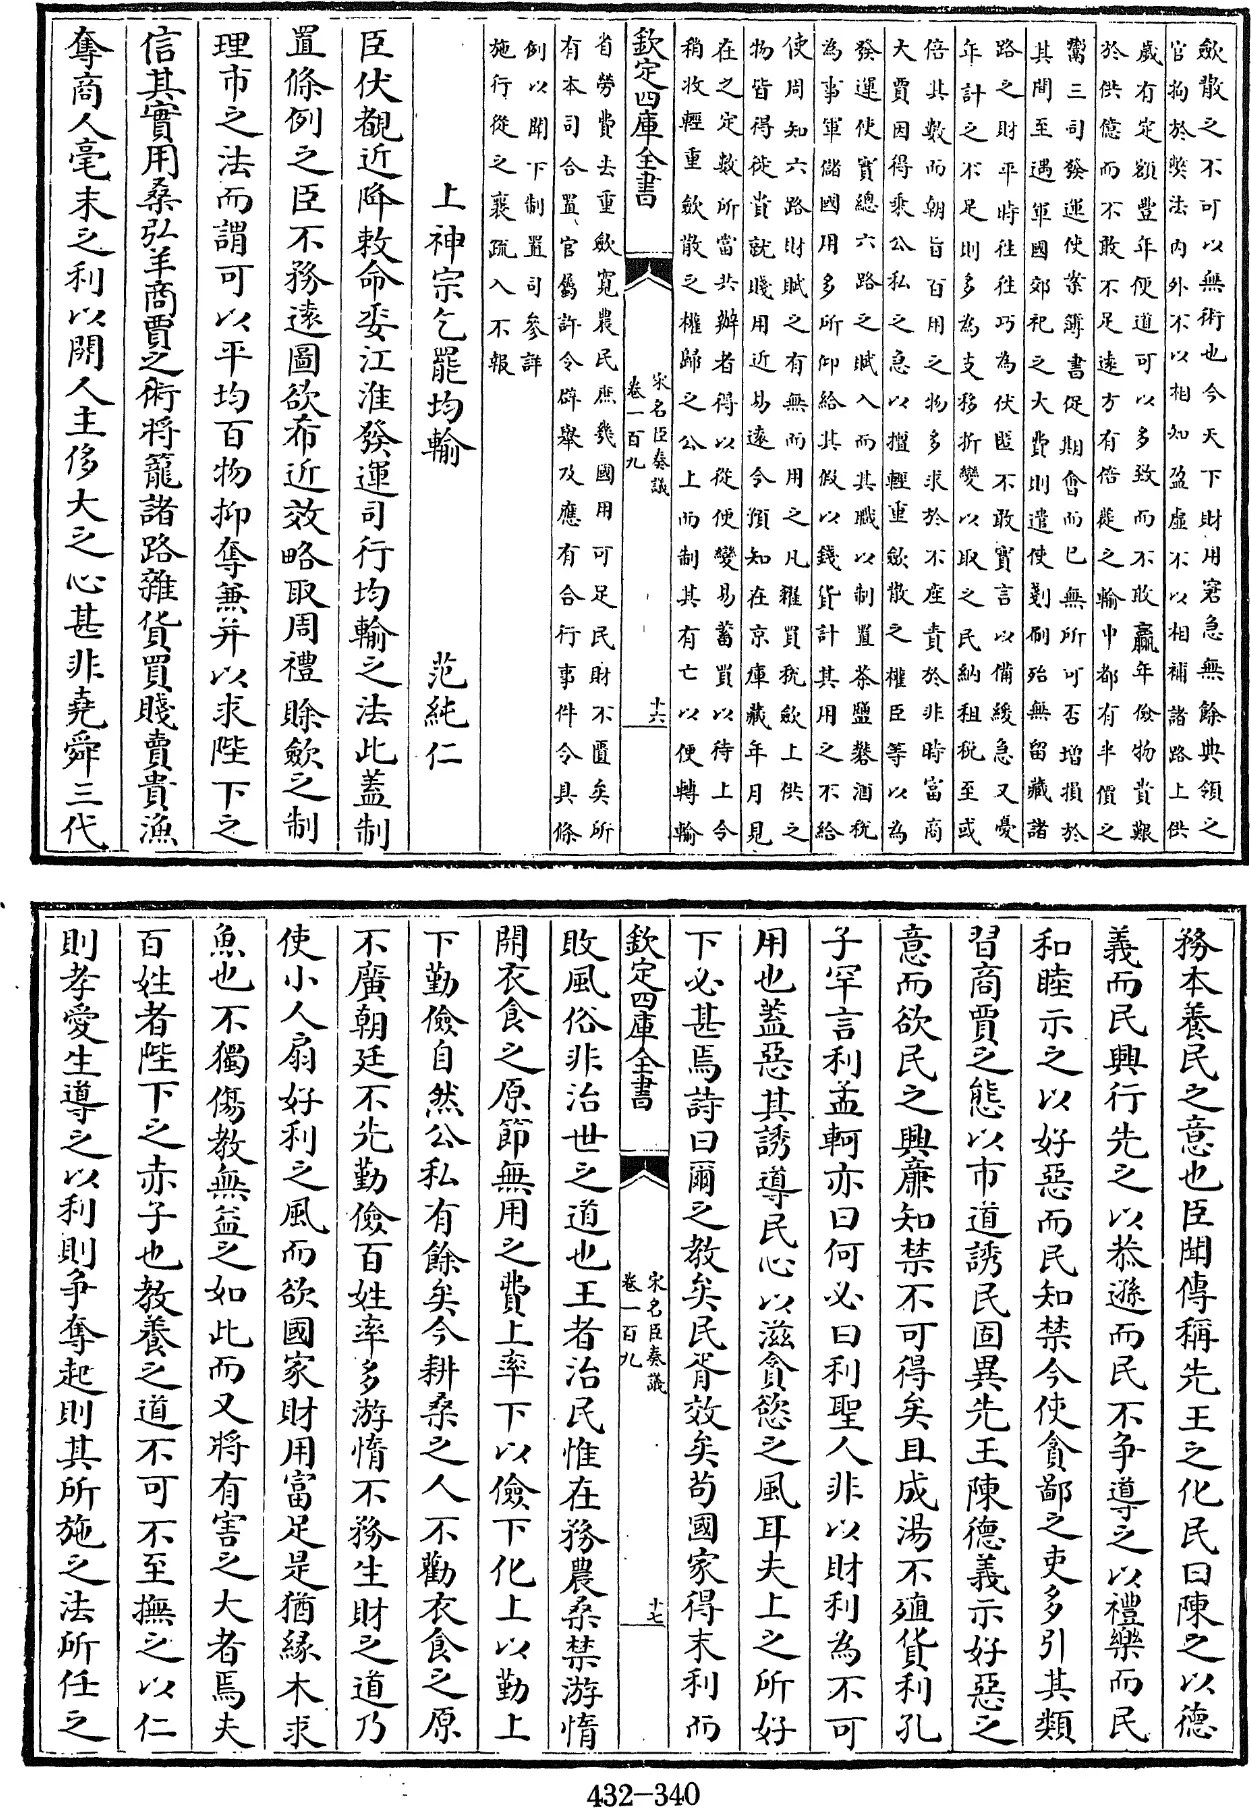 斂散之不可以無術也今天下財用窘急無餘典領之
官拘於弊法内外不以相知盈虛不以相補諸路上供
歲有定額豐年便道可以多致而不敢贏年儉物貴艱
於供億而不敢不足遠方有倍蓰之輸中都有半價之
鬻三司發運使案簿書促期會而已無所可否增損於
其間至遇軍國郊祀之大費則遣使剗刷殆無留藏諸
路之財平時往往巧為伏匿不敢實言以備緩急又憂
年計之不足則多為支移折變以取之民納租稅至或
倍其數而朝旨百用之物多求於不産責於非時富商
大賈因得乘公私之急以擅輕重斂散之權臣等以為
發運使實總六路之賦入而其職以制置茶鹽礬酒稅
為事軍儲國用多所仰給其假以錢貨計其用之不給
使周知六路財賦之有無而用之凡糴買稅斂上供之
物皆得徙貴就賤用近易遠令預知在京庫藏年月見
在之定數所當共辦者得以從便變易蓄買以待上令
稍收輕重斂散之權歸之公上而制其有亡以便轉輸
欽定四庫全書
宋名臣奏議
卷一百九
十六
省勞費去重斂寛農民庶幾國用可足民財不匱矣所
有本司合置官屬許令辟舉及應有合行事件令具條
例以聞下制置司參詳
施行從之襄疏入不報
上神宗乞罷均輸
范純仁
臣伏覩近降敕命委江淮發運司行均輸之法此蓋制
置條例之臣不務遠圖欲希近效略取周禮賒斂之制
理市之法而謂可以平均百物抑奪兼并以求陛下之
信其實用桑弘羊商賈之術將籠諸路雜貨買賤賣貴漁
奪商人毫末之利以開人主侈大之心甚非堯舜三代
務本養民之意也臣聞傳稱先王之化民曰陳之以德
義而民興行先之以恭遜而民不争導之以禮樂而民
和睦示之以好惡而民知禁今使貪鄙之吏多引其類
習商賈之態以市道誘民固異先王陳德義示好惡之
意而欲民之興廉知禁不可得矣且成湯不殖貨利孔
子罕言利孟軻亦曰何必曰利聖人非以財利為不可
用也蓋惡其誘導民心以滋貪慾之風耳夫上之所好
下必甚焉詩曰爾之教矣民胥效矣苟國家得末利而
欽定四庫全書
宋名臣奏議
卷一百九
十七
敗風俗非治世之道也王者治民惟在務農桑禁游惰
開衣食之原節無用之費上率下以儉下化上以勤上
下勤儉自然公私有餘矣今耕桑之人不勸衣食之原
不廣朝廷不先勤儉百姓率多游惰不務生財之道乃
使小人扇好利之風而欲國家財用富足是猶緣木求
魚也不獨傷教無益之如此而又將有害之大者焉夫
百姓者陛下之赤子也教養之道不可不至撫之以仁
則孝愛生導之以利則争奪起則其所施之法所任之
432-340